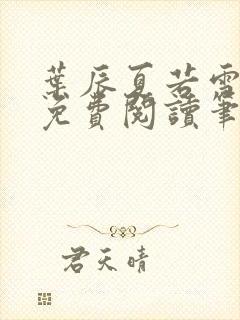 葉辰夏若雪
免費閱讀筆
君天晴